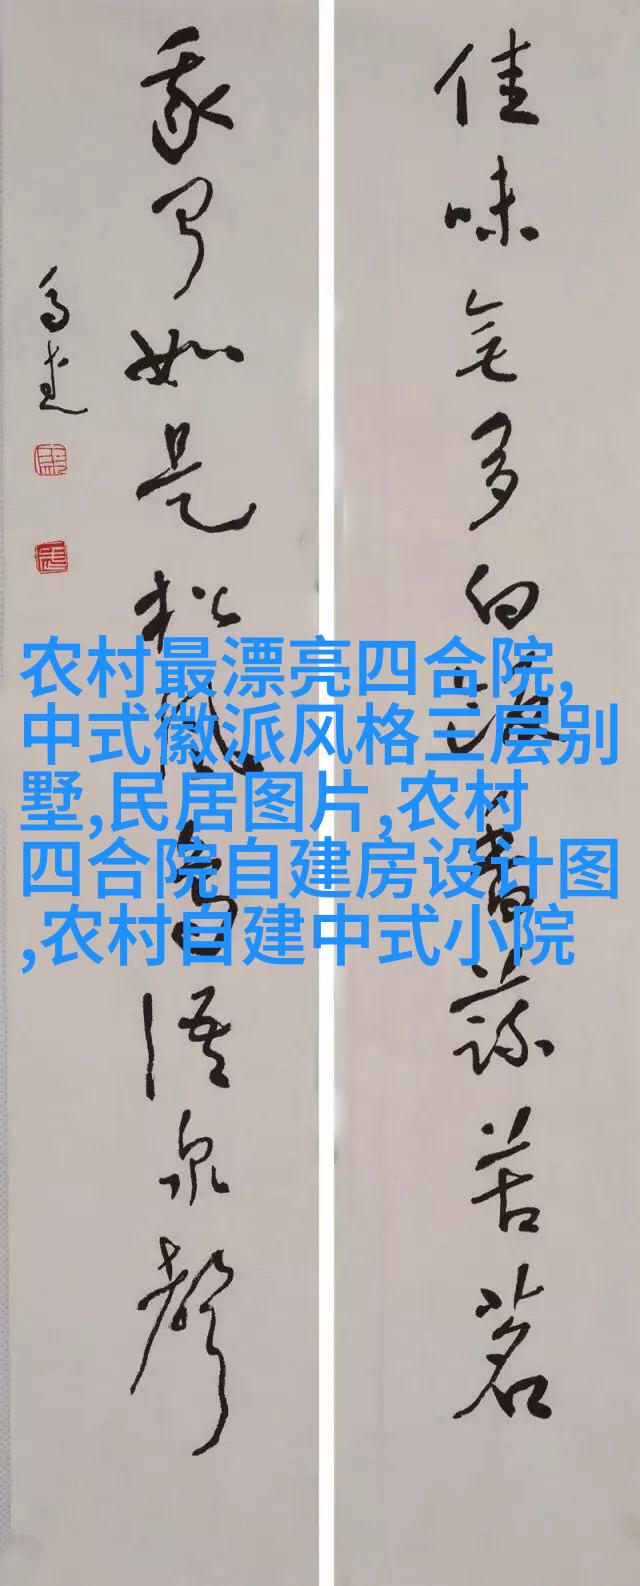 佳味無多白飯香蔬苦茗
我聞如是松風鳥語泉聲
农村最漂亮四合院,
中式徽派风格三层别
墅,民居图片,农村
四合院自建房设计图
,农村自建中式小院